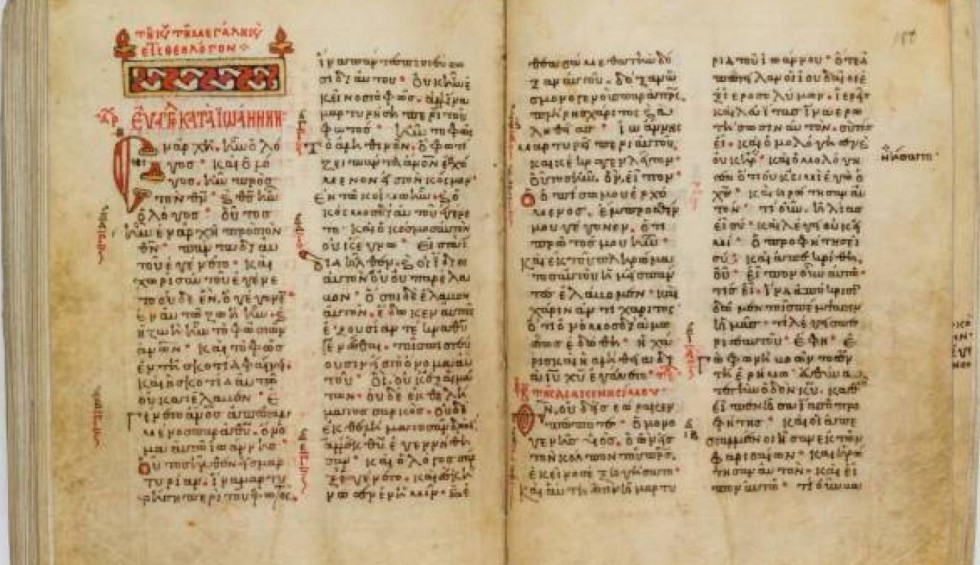 ΕΥΑΓΓ ΚΑΤΑ ΙΩΑΝΝΗΝ
Ἐν ἀρχῇ ἦν ὁ λό
γος· καὶ ὁ λό
γος ἦν πρὸς
τὸν θν· κ θς ἦν
ὁ λόγος· οὗτος
ἦν ἐν ἀρχῇ πρὸς τὸν
θν· πάντα δι αὐ
τοῦ ἐγένετο· καὶ
χωρὶς αὐτοῦ ἐγένε
το οὐδὲ ἕν. ὃ γέγονεν
ἐν αὐτῷ ζωὴ ἦν· κ
ἡ ζωὴ ἦν τὸ φῶς τῶν
ἀνων· καὶ τὸ φῶς
ἐν τῇ σκοτίᾳ φαίνει·
καὶ ἡ σκοτία αὐτὸ
οὐ κατέλαβεν· ἐ
γένετο ἄνος ἀπεσταλ
μένος παρὰ θυ· ὄνο
μα αὐτῷ ἰωάννης·
οὗτος ἦλθεν εἰς μαρ
τυρίαν. ἵνα μαρτυ
ρήσῃ περὶ τοῦ φωτός.
ἵνα πάντες πιστεύσω
σι δι αὐτοῦ· οὐκ ἦν ἐ
κεῖνος τὸ φῶς. ἀλλ ἵνα
μαρτυρήσῃ περὶ τοῦ
φωτός· ἦν τὸ φῶς
τὸ ἀληθινόν. ὃ φωτί
ζει πάντα ἄνον ἐρχό
μενον εἰς τὸν κόσμον·
ἐν τῷ κόσμῳ ἦν· κ ὁ
κόσμος δι αὐτοῦ ἐγένε
το· καὶ ὁ κόσμος αὐτὸν
οὐκ ἔγνω· εἰς τὰ ἴ
δια ἦλθεν. κ οἱ ἴδιοι
αὐτὸν οὐ παρέλα
βον· ὅσοι δὲ ἔλαβον
αὐτόν. ἔδωκεν αὐτοῖς
ἐξουσίαν τέκνα θυ
γενέσθαι. τοῖς πιστεύ
ουσιν εἰς τὸ ὄνομα αὐ
τοῦ· οἳ οὐκ ἐξ αἱμά
των· οὐδὲ ἐκ θελή
ματος σαρκός. οὐδὲ
ἐκ θελήματος ἀνδρός.
ἀλλ ἐκ θυ ἐγεννήθη
σαν· καὶ ὁ λόγος σὰρ
ξ ἐγένετο. καὶ ἐσκή
νωσεν ἐν ἡμῖν. κ ἐ
θεασάμεθα τὴν δό
ξαν αὐτοῦ. δόξαν ὡς
μονογενοῦς παρὰ πρς.
πλήρης χάριτος κ ἀ
ληθείας· ἰωάννης
μαρτυρεῖ περὶ αὐτοῦ.
καὶ κέκραγε λέγων·
οὗτος ἦν. ὃν εἶπον·
ὁ ὀπίσω μου ἐρχό
μενος. ἔμπροσθέν
μου γέγονεν. ὅτι
πρῶτός μου ἦν·
καὶ ἐκ τοῦ πληρώμα
τος αὐτοῦ ἡμεῖς πάν
τες ἐλάβομεν· καὶ
χάριν ἀντὶ χάριτος·
ὅτι ὁ νόμος διὰ μωσέ
ως ἐδόθη· ἡ χά
ρις καὶ ἡ ἀλήθεια δι
ὰ ιυ χυ ἐγένετο·
τῇ β τῆς διακαινησίμου
Θν οὐδεὶς ἑώρακεν
πώποτε· ὁ μονο
γενὴς υς. ὁ ὢν εἰς
τὸν κόλπον τοῦ πρς.
ἐκεῖνος ἐξηγήσατο·
καὶ αὕτη ἐστὶν ἡ μαρτυ
ρία τοῦ ἰωάννου· ὅτε ἀ
πέστειλαν οἱ ἰουδαῖοι ἐ
ξ ἱεροσολύμων. ἱερεῖς
καὶ λευίτας ἵνα ἐρω
τήσωσιν αὐτόν. σὺ τίς
εἶ. καὶ ὡμολόγησε κ
οὐκ ἠρ καὶ ὡμολόγη
σεν ὅτι οὐκ εἰμὶ ἐγὼ ὁ
χς· καὶ ἠρώτησαν αὐ
τόν· τί οὖν. ἠλίας
εἶ σύ· καὶ λέγει οὐκ εἰ
μί· ὁ προφήτης εἶ
σύ· καὶ ἀπεκρίθη.
οὔ· εἶπον οὖν αὐτῷ·
τίς εἶ. ἵνα ἀπόκρισιν
δῶμεν τοῖς πέμψασιν
ἡμᾶς· τί λέγεις πε
ρὶ σεαυτοῦ· ἔφη· ἐ
γὼ φωνὴ βοῶντος ἐν
τῇ ἐρήμῳ· εὐθύνα
τε τὴν ὁδὸν κυ. καθὼς
εἶπεν ἡσαΐας ὁ προ
φήτης· καὶ οἱ ἀπε
σταλμένοι ἦσαν ἐκ τῶν
φαρισαίων· καὶ ἠρώ
τησαν αὐτόν· καὶ εἶ
πον αὐτῷ· τί οὖν βα